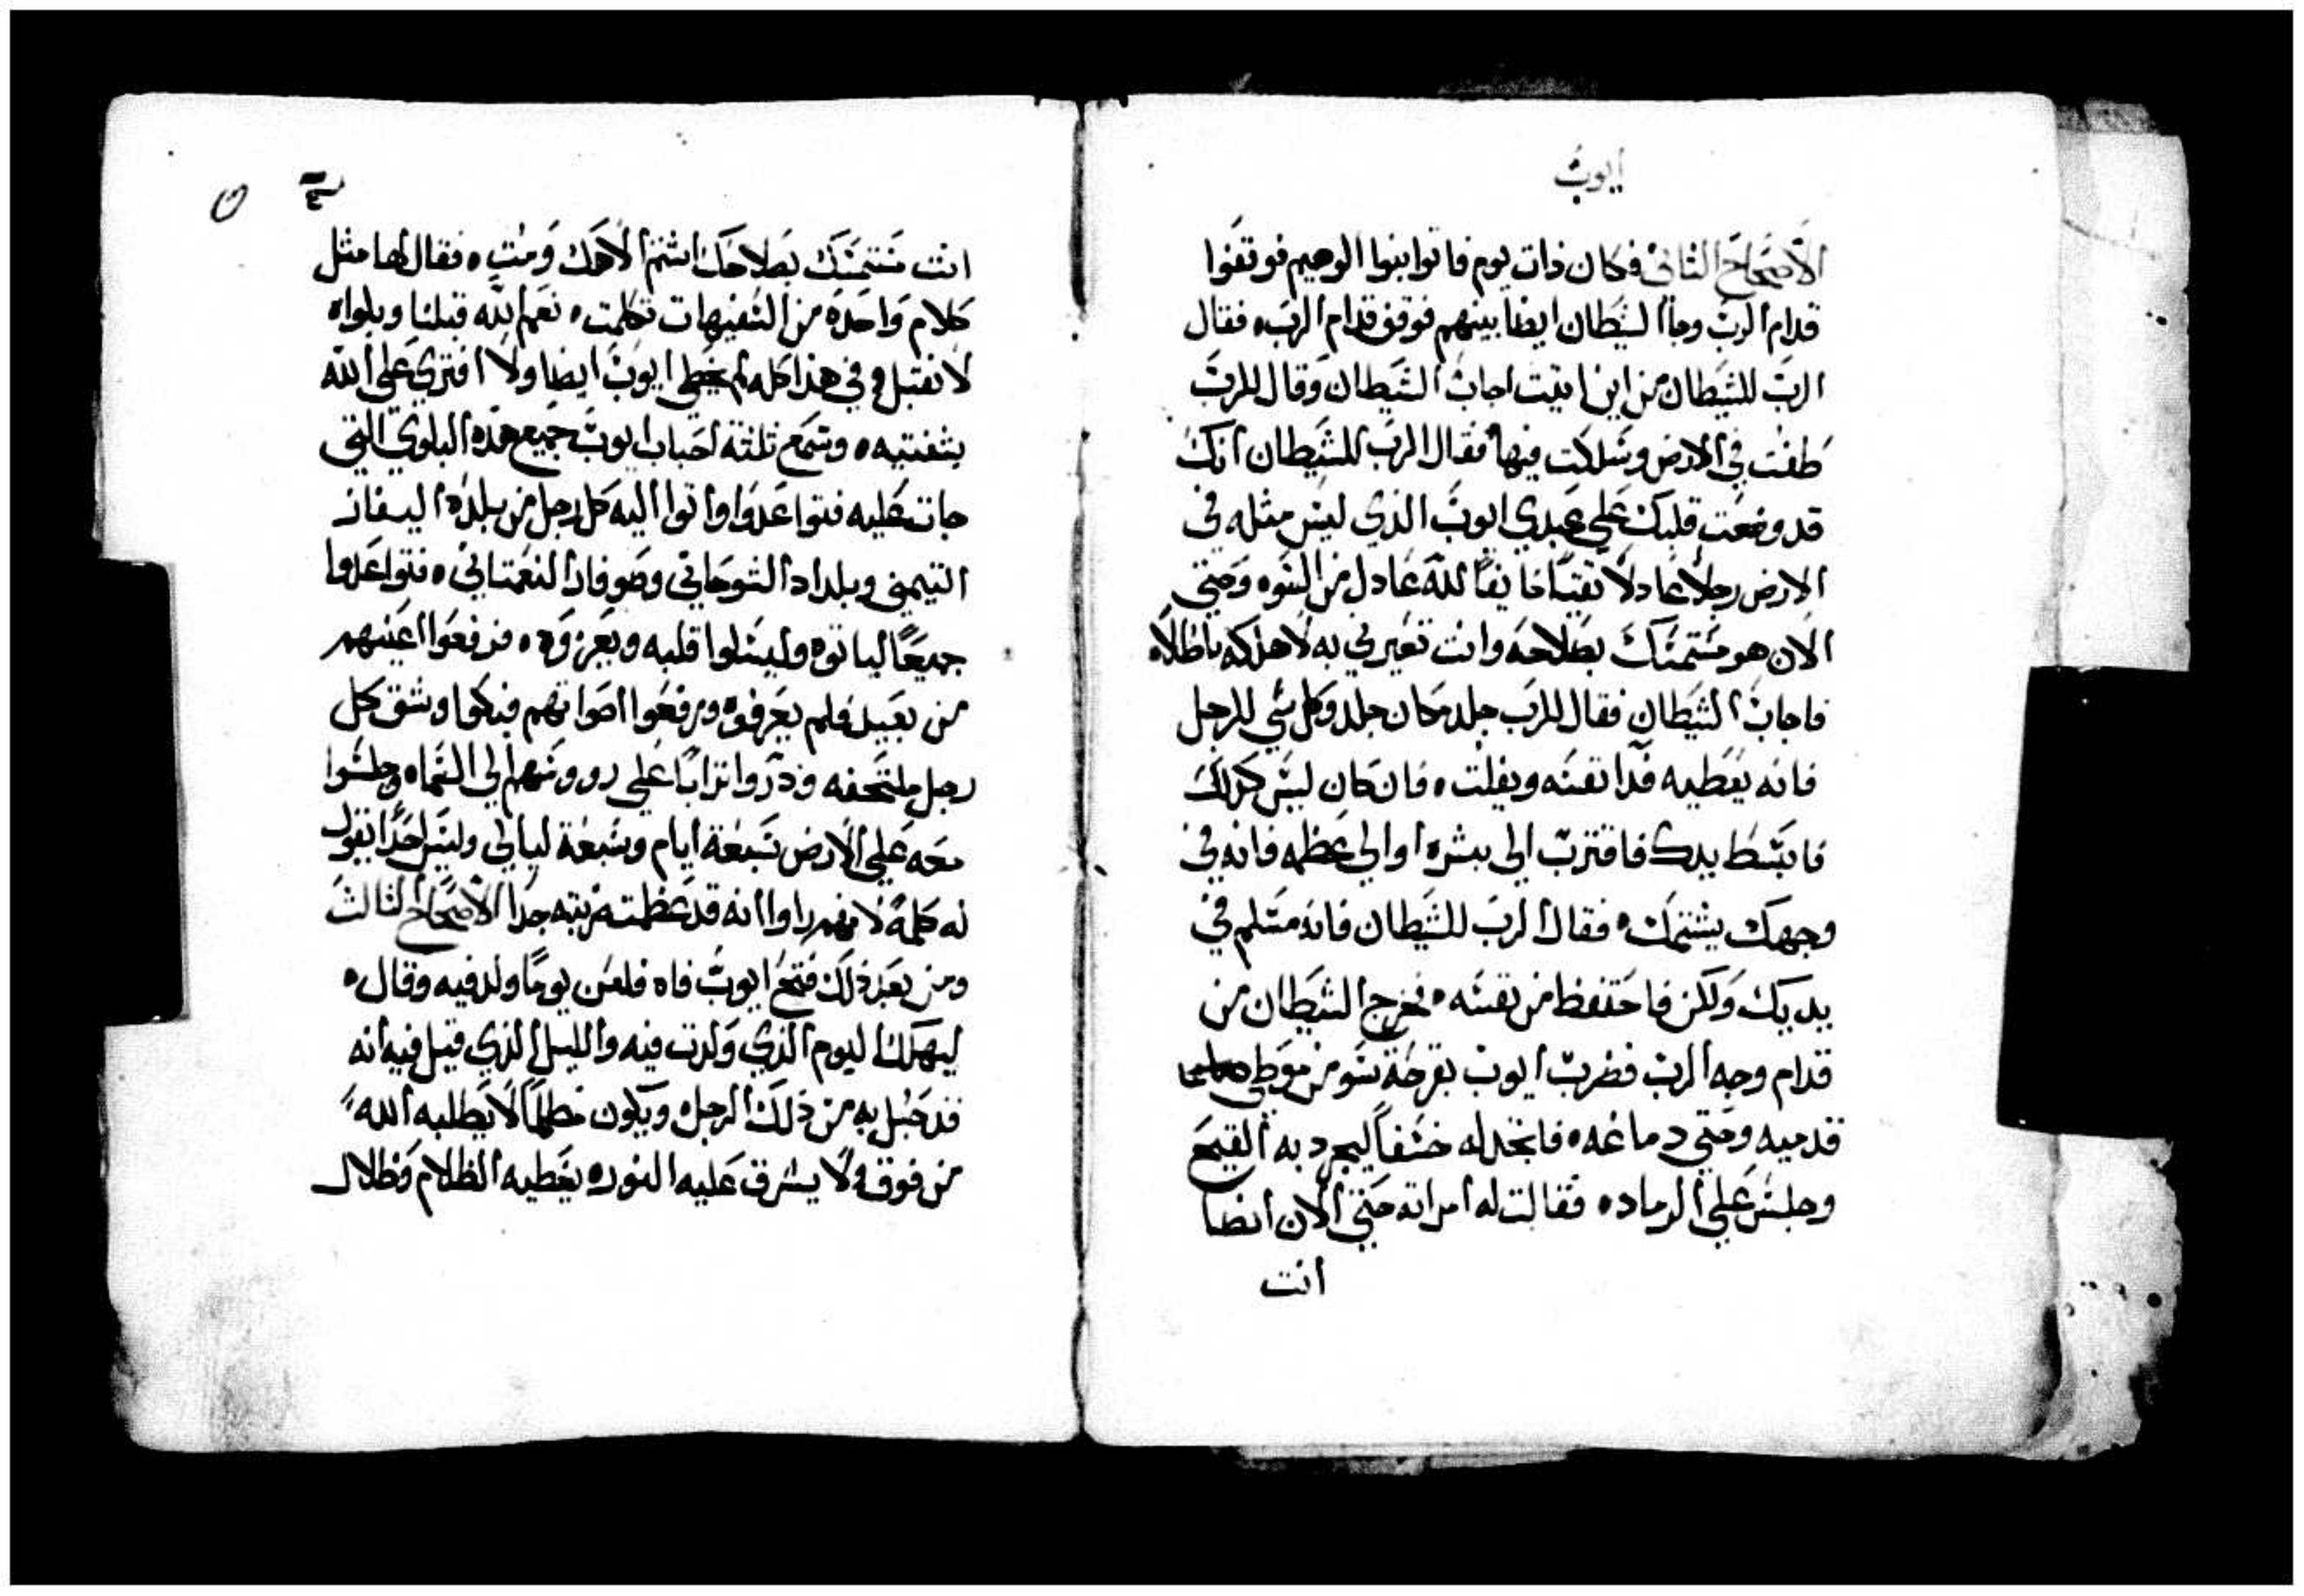 ايوب
الاصحاح الثاني فكان ذات يوم فاتوا بنوا الوهيم فوقفوا
قدام الرب وجا الشيطان ايضا بينهم فوقف قدام الرب ه فقال
الرب للشيطان من اين اتيت اجاب الشيطان وقال للرب
طفت في الارض وسلكت فيها فقال الرب للشيطان انك
قد وضعت قلبك علي عبدي ايوب الذي ليس مثله في
الارض رجلا عادلا نقيا خايفا لله عادل من السوه وحتي
الان هو متمسك بصلاحه وانت تغيرني به لاهلكه باطلاه
فاجاب الشيطان فقال للرب جلد مكان جلد وكل شي للرجل
فانه يعطيه فدا نفسه ويفلت ه فان كان ليس كذلك
فابسط يدك فاقترب الي بشره او الي عظمه فانه في
وجهك يشتمك ه فقال الرب للشيطان فانه مسلم في
يديك ولكن فاحتفظ من نفسه ه فخرج الشيطان من
قدام وجه الرب فضرب ايوب بقرحة سو من موطي
قدميه وحتي دماغه ه فاتخد له خشفا ليجرد به القيح
وجلس علي الرماد ه فقالت له امراته حتي الان ايضا
انت
انت متمسك بصلاحك اشتم الاهك ومت ه فقال لها مثل
كلام واحدة من السفيهات تكلمت ه نعم لله قبلنا وبلواه
لا نقبل وفي هذا كله لم يخطي ايوب ايضا ولا افتري علي الله
بشفتيه ه وسمع تلتة احباب ايوب جميع هذه البلوي التي
جات عليه فتواعدوا واتوا اليه كل رجل من بلده اليفاز
التيمني وبلداد الشوحاني وصوفار النعتاني ه فتواعدوا
جميعا لياتوه وليسلوا قلبه ويعزوه ه فرفعوا اعينهم
من بعيد فلم يعرفوه ورفعوا اصواتهم فبكوا وشق كل
رجل ملتحفه وذروا ترابا علي رووسهم الي السماه وجلسوا
معه علي الارض سبعة ايام وسبعة ليالي وليس احدا يقول
له كلمة لانهم راوا انه قد عظمت ضربته جدا الاصحاح الثالث
ومن بعد ذلك فتح ايوب فاه فلعن يوما ولد فيه وقال ه
ليهلك اليوم الذي ولدت فيه والليل الذي قيل فيه انه
قد حبل به من ذلك الرجل ه ويكون مظلما لا يطلبه الله
من فوق ولا يشرق عليه النور ه يغطيه الظلام وظلال